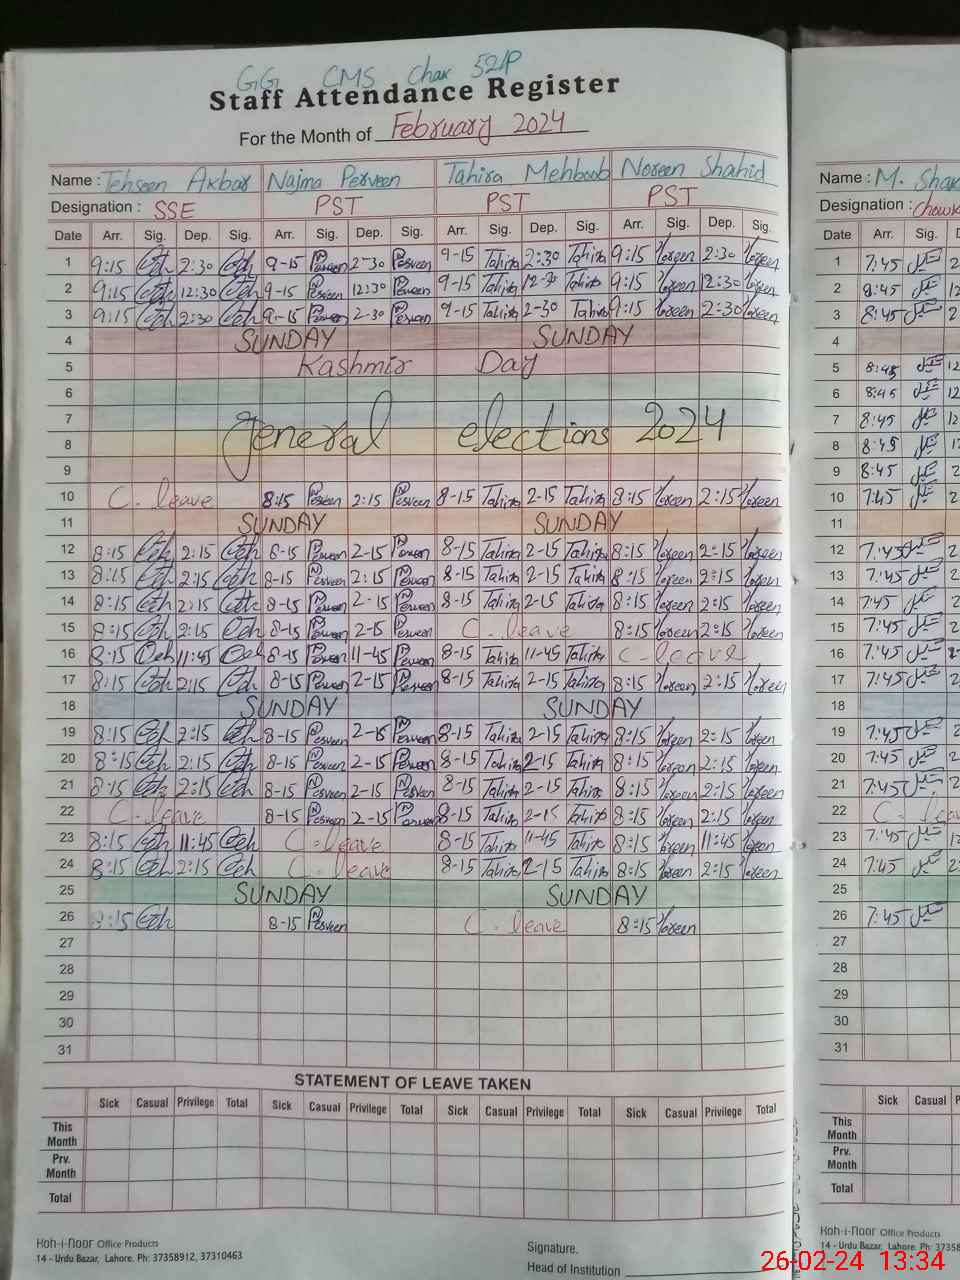 GG CMS Chak 52/P
Staff Attendance Register
For the Month of February 2024
Name : Tehseen Akbar Najma Perveen Tahira Mehboob Noreen Shahid
Designation : SSE PST PST PST
Date Arr. Sig. Dep. Sig. Arr. Sig. Dep. Sig. Arr. Sig. Dep. Sig. Arr. Sig. Dep. Sig.
1 9:15 2:30 9-15 Perveen 2-30 Perveen 9-15 Tahira 2:30 Tahira 9:15 Noreen 2:30 Noreen
2 9:15 12:30 9-15 Perveen 12:30 Perveen 9-15 Tahira 12-30 Tahira 9:15 Noreen 12:30 Noreen
3 9:15 2:30 9-15 Perveen 2-30 Perveen 9-15 Tahira 2-30 Tahira 9:15 Noreen 2:30 Noreen
4 SUNDAY SUNDAY
5 Kashmir Day
6
7 General elections 2024
8
9
10 C. leave 8:15 N Perveen 2:15 N Perveen 8-15 Tahira 2-15 Tahira 8:15 Noreen 2:15 Noreen
11 SUNDAY SUNDAY
12 8:15 2:15 8-15 N Perveen 2-15 N Perveen 8-15 Tahira 2-15 Tahira 8:15 Noreen 2:15 Noreen
13 8:15 2:15 8-15 N Perveen 2:15 N Perveen 8-15 Tahira 2-15 Tahira 8:15 Noreen 2:15 Noreen
14 8:15 2:15 8-15 N Perveen 2-15 N Perveen 8-15 Tahira 2-15 Tahira 8:15 Noreen 2:15 Noreen
15 8:15 2:15 8-15 N Perveen 2-15 N Perveen C. leave 8:15 Noreen 2:15 Noreen
16 8:15 11:45 8-15 N Perveen 11-45 N Perveen 8-15 Tahira 11-45 Tahira C. leave
17 8:15 2:15 8-15 N Perveen 2-15 N Perveen 8-15 Tahira 2-15 Tahira 8:15 Noreen 2:15 Noreen
18 SUNDAY SUNDAY
19 8:15 2:15 8-15 N Perveen 2-15 N Perveen 8-15 Tahira 2-15 Tahira 8:15 Noreen 2:15 Noreen
20 8:15 2:15 8-15 N Perveen 2-15 N Perveen 8-15 Tahira 2-15 Tahira 8:15 Noreen 2:15 Noreen
21 8:15 2:15 8-15 N Perveen 2-15 N Perveen 8-15 Tahira 2-15 Tahira 8:15 Noreen 2:15 Noreen
22 C. leave 8-15 N Perveen 2-15 N Perveen 8-15 Tahira 2-15 Tahira 8:15 Noreen 2:15 Noreen
23 8:15 11:45 C. leave 8-15 Tahira 11-45 Tahira 8:15 Noreen 11:45 Noreen
24 8:15 2:15 C. leave 8-15 Tahira 2-15 Tahira 8:15 Noreen 2:15 Noreen
25 SUNDAY SUNDAY
26 8:15 8-15 N Perveen C. leave 8:15 Noreen
27
28
29
30
31
STATEMENT OF LEAVE TAKEN
Sick Casual Privilege Total Sick Casual Privilege Total Sick Casual Privilege Total Sick Casual Privilege Total
This Month
Prv. Month
Total
Koh-i-Noor Office Products
14 - Urdu Bazar, Lahore. Ph: 37358912, 37310463
Signature.
Head of Institution
Name : M.
Designation :
Date Arr. Sig.
1 7:45
2 8:45
3 8:45
4
5 8:45
6 8:45
7 8:45
8 8:45
9 8:45
10 7:45
11
12 7:45
13 7:45
14 7:45
15 7:45
16 7:45
17 7:45
18
19 7:45
20 7:45
21 7:45
22 C.
23 7:45
24 7:45
25
26 7:45
27
28
29
30
31
Sick Casual
This Month
Prv. Month
Total
Koh-i-Noor Office Products
14 - Urdu Bazar, Lahore. Ph:
26-02-24 13:34